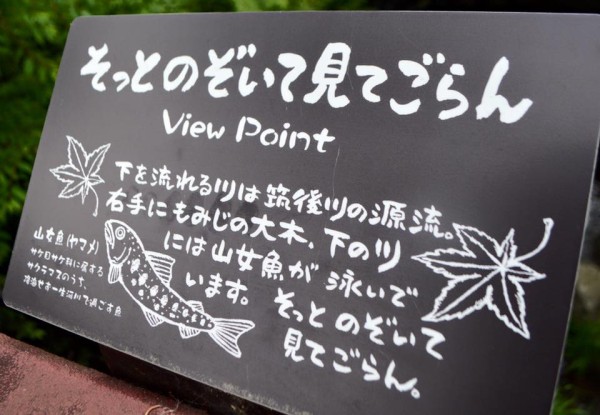 そっとのぞいて見てごらん
View Point
下を流れる川は筑後川の源流。
右手にもみじの大木、下の川
には山女魚が泳いで
います。
そっとのぞいて
見てごらん。
山女魚(ヤマメ)
サケ目サケ科に属する
サクラマスのうち、
降海せず一生を河川で過ごす魚